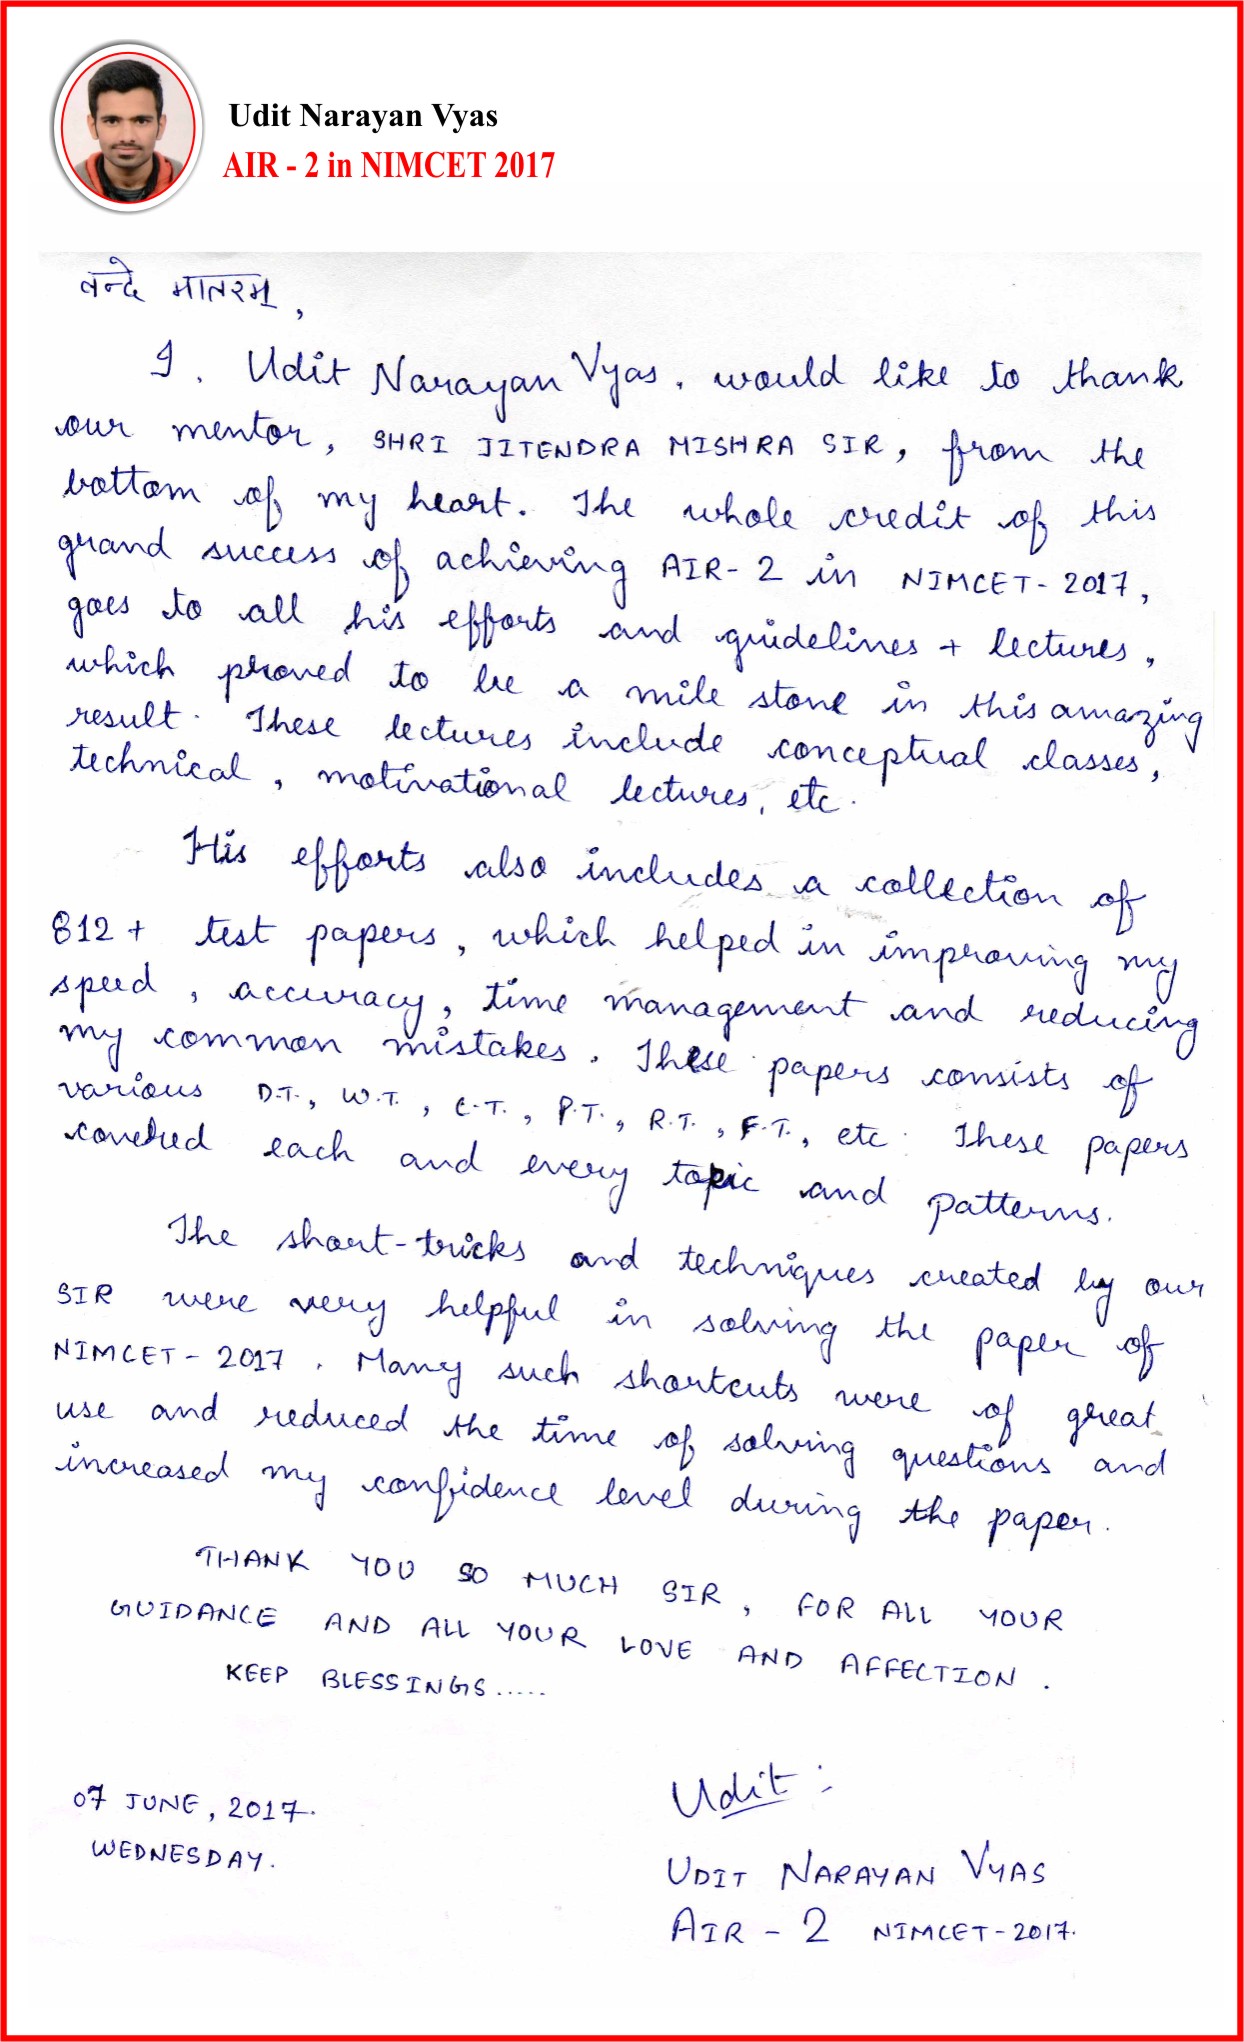 Udit Narayan Vyas
AIR - 2 in NIMCET 2017
वन्दे मातरम्,
I, Udit Narayan Vyas, would like to thank
our mentor, SHRI JITENDRA MISHRA SIR, from the
bottom of my heart. The whole credit of this
grand success of achieving AIR-2 in NIMCET-2017,
goes to all his efforts and guidelines + lectures,
which proved to be a mile stone in this amazing
result. These lectures include conceptual classes,
technical, motivational lectures, etc.
His efforts also includes a collection of
812+ test papers, which helped in improving my
speed, accuracy, time management and reducing
my common mistakes. These papers consists of
various D.T., W.T., C.T., P.T., R.T., F.T., etc. These papers
covered each and every topic and patterns.
The short-tricks and techniques created by our
SIR were very helpful in solving the paper of
NIMCET-2017. Many such shortcuts were of great
use and reduced the time of solving questions and
increased my confidence level during the paper.
THANK YOU SO MUCH SIR, FOR ALL YOUR
GUIDANCE AND ALL YOUR LOVE AND AFFECTION.
KEEP BLESSINGS.....
07 JUNE, 2017.
WEDNESDAY.
Udit :
UDIT NARAYAN VYAS
AIR - 2 NIMCET-2017.